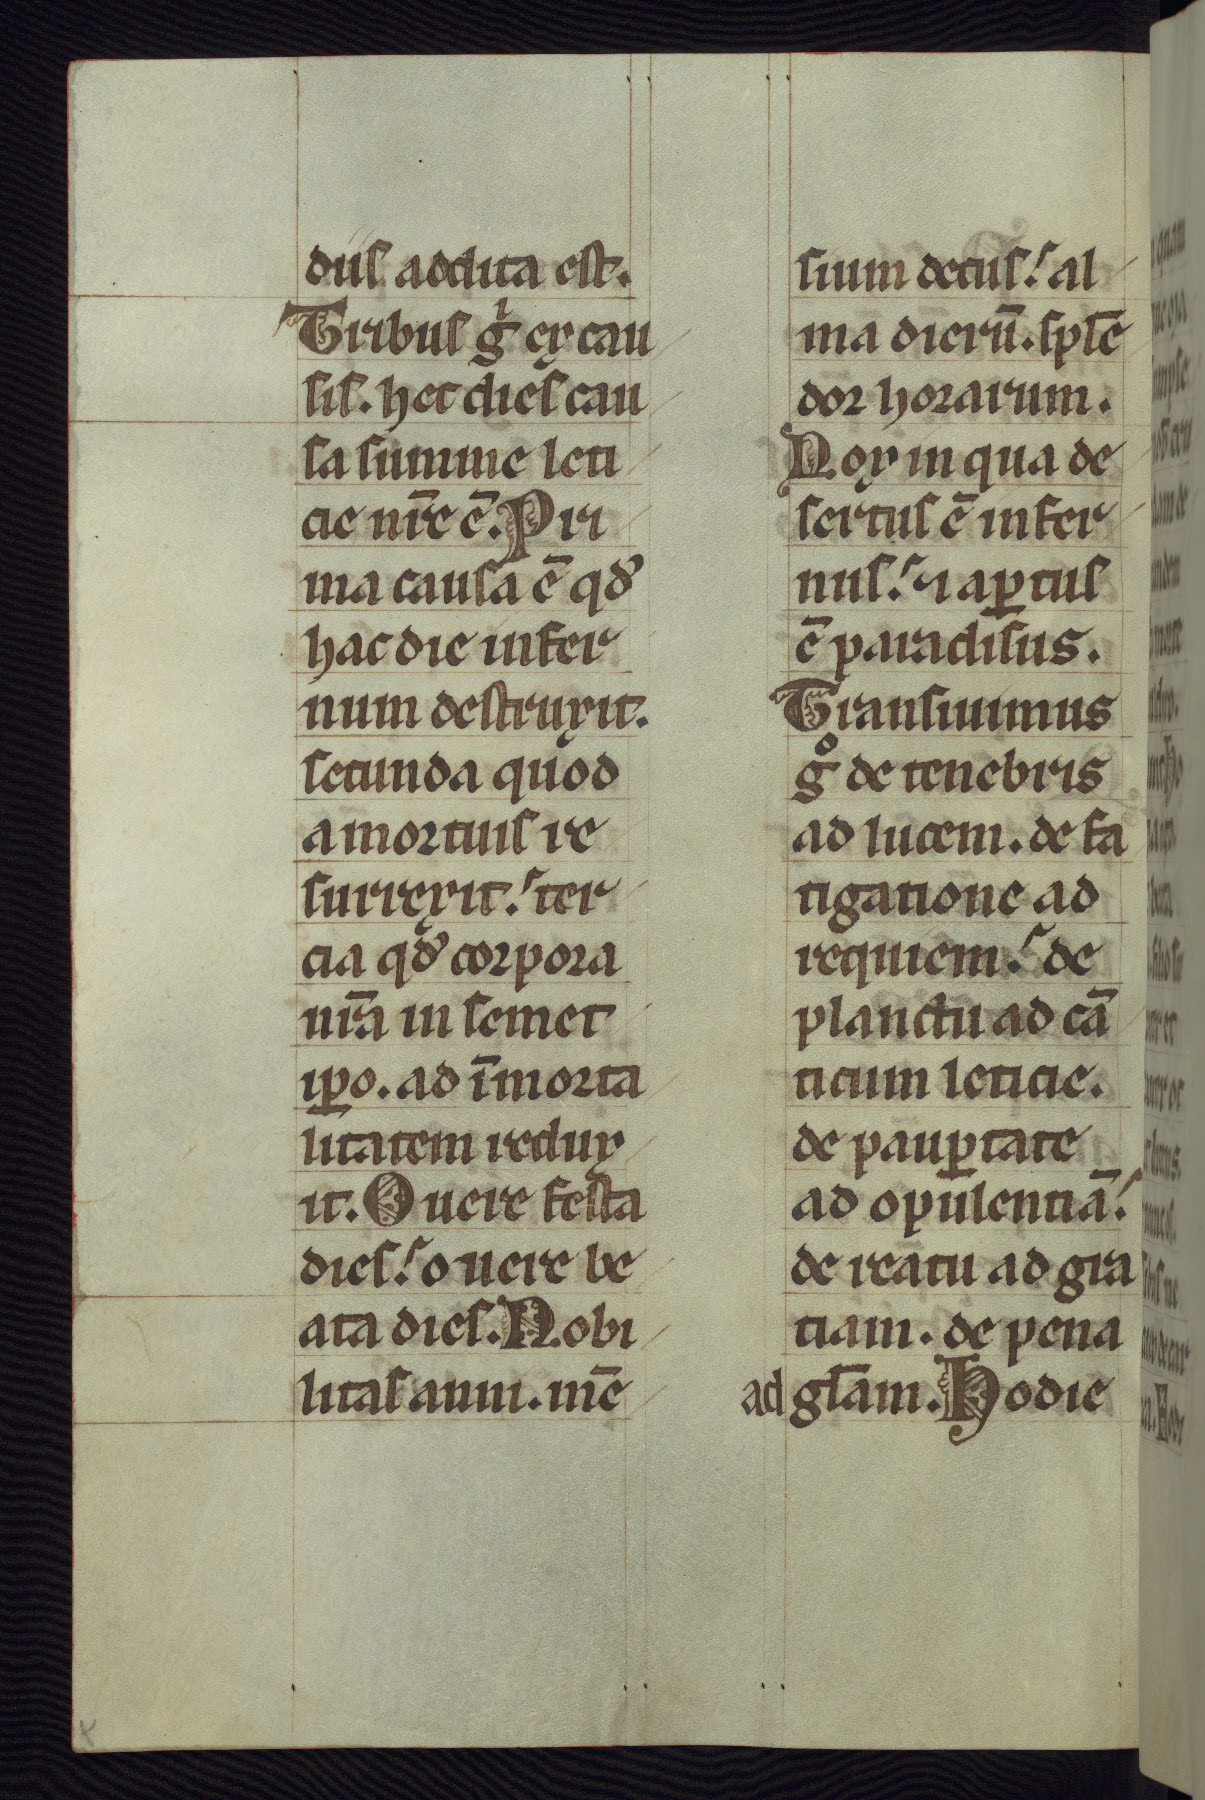 dus addita est.
Tribus gͥ ex cau
sis. hec dies cau
sa summe leti
cie nr̄e ē. Pri
ma causa ē qđ
hac die infer
num destruxit.
secunda quod
a mortuis re
surrexit. ter
cia qđ corpora
nr̄a in semet
ip̱o. ad īmorta
litatem redux
it. O uere festa
dies. o uere be
ata dies. Nobi
litas anni. mē
sium decus. al
ma dierū. splē
dor horarum.
Nox in qua de
sertus ē infer
nus. ⁊ ap̱tus
ē paradisus.
Transiuimus
gͦ de tenebris
ad lucem. de fa
tigatione ad
requiem. de
planctu ad cā
ticum leticie.
de paup̱tate
ad opulentiā.
de reatu ad gra
tiam. de pena
ad gl̄am. Hodie